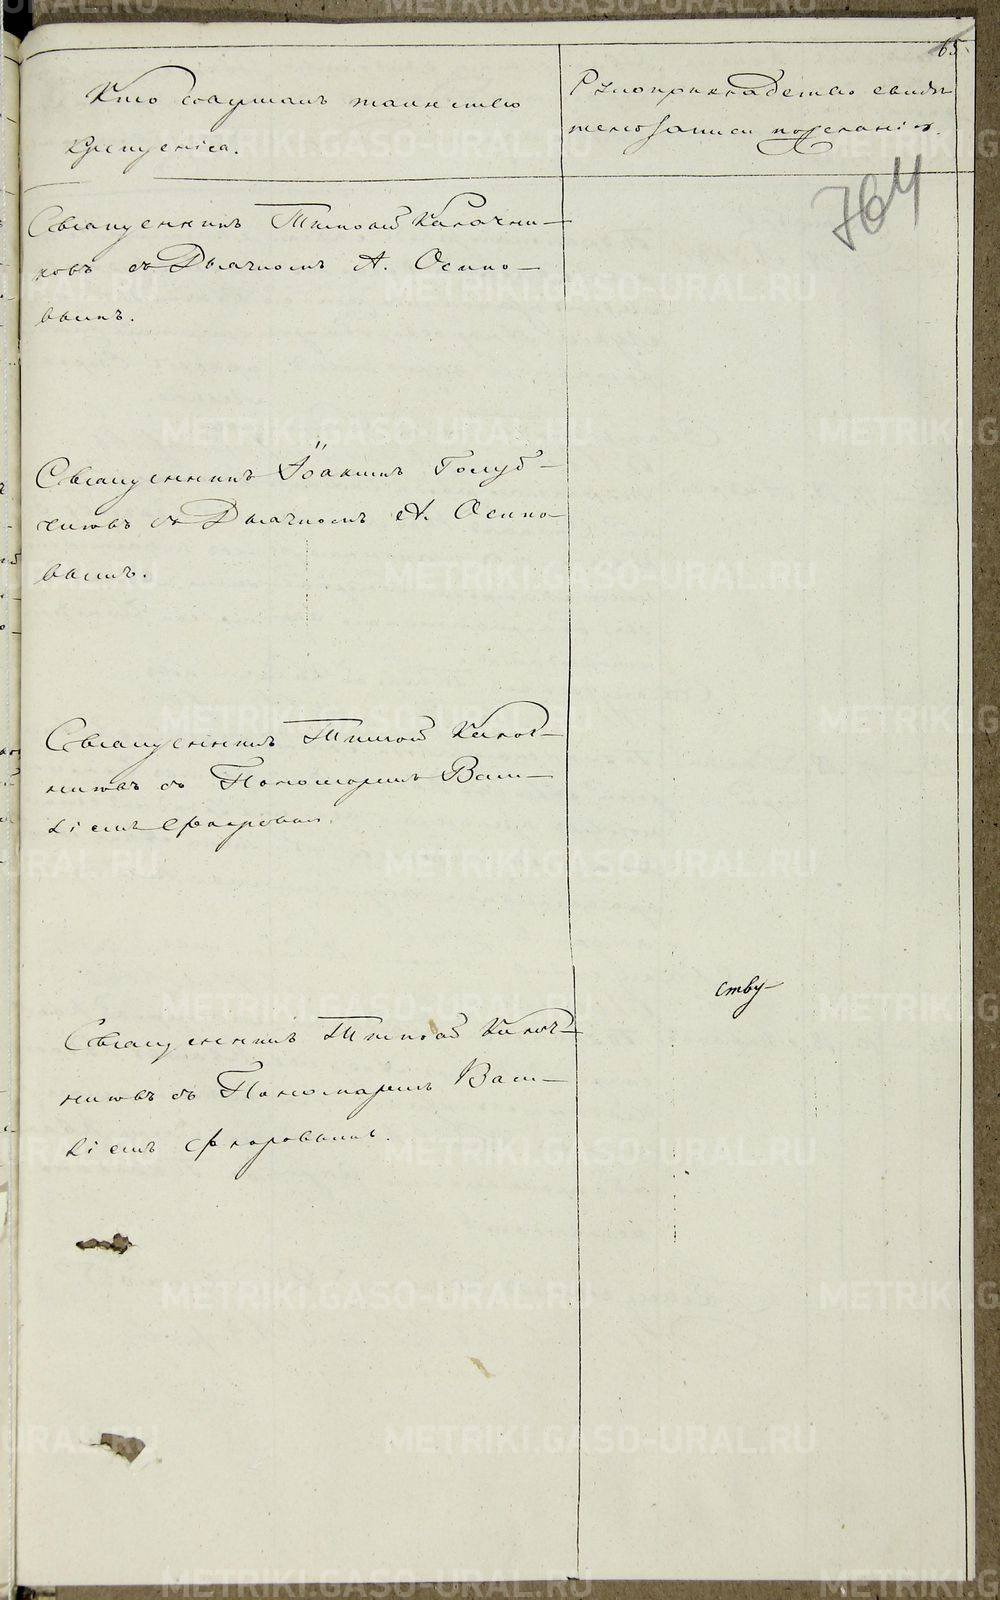 65
Кто совершалъ таинство
крещенiя.
Рукоприкладство свидѣ
телей записи по желанiю.
764
Священникъ Тимофей Калачни-
ковъ съ Дьячкомъ А. Осипо-
вымъ.
Священникъ Iоакимъ Голуб-
чиковъ съ Дьячкомъ А. Осипо-
вымъ.
Священникъ Тимофей Калач-
никовъ съ Пономаремъ Васи-
лiемъ Флоровым.
ству-
Священникъ Тимофей Калач-
никовъ съ Пономаремъ Васи-
лiемъ Флоровымъ.
METRIKI.GASO-URAL.RU